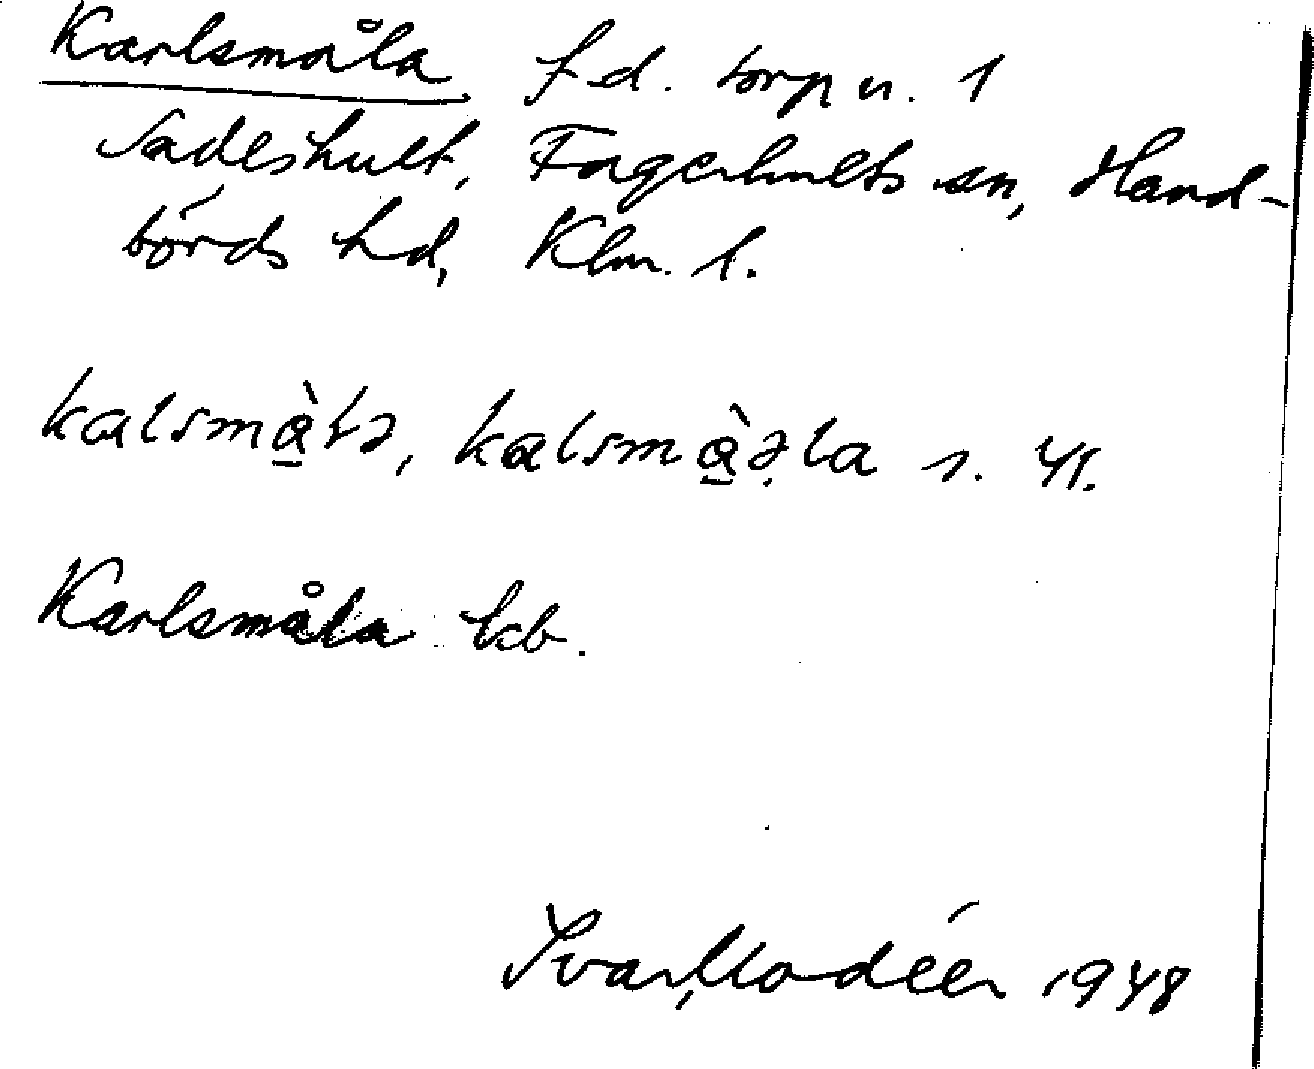 Karlsmåla f.d. torp u. 1
Sadeshult, Fagerhults sn, Hand-
börds hd, Klm. l.
kalsmà̱ɫə, kalsmà̱ə̣la s. 41.
Karlsmåla kb.
Ivar Modéer 1948